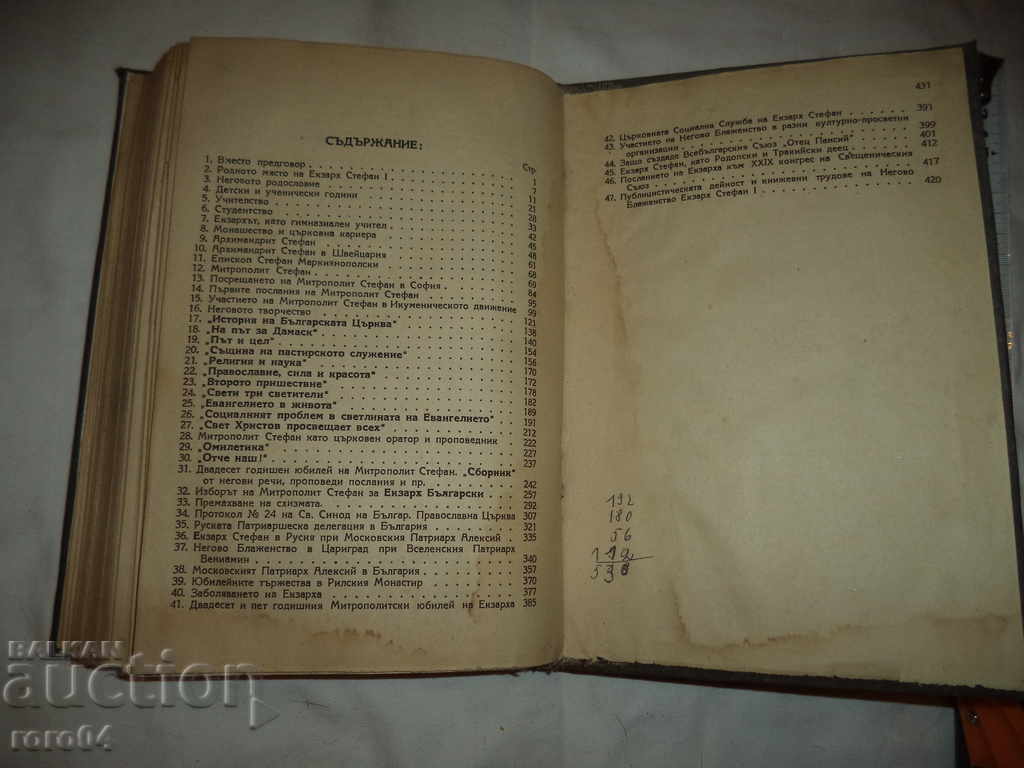 СЪДЪРЖАНИЕ:
Стр
1. Вместо предговор 1
2. Родното място на Екзарх Стефан I 2
3. Неговото родословие 11
4. Детски и ученически години 21
5. Учителство 28
6. Студентство 33
7. Екзархът, като гимназиален учител 42
8. Монашество и църковна кариера 45
9. Архимандрит Стефан 48
10. Архимандрит Стефан в Швейцария 61
11. Епископ Стефан Маркианополски 68
12. Митрополит Стефан 69
13. Посрещането на Митрополит Стефан в София 84
14. Първите послания на Митрополит Стефан 95
15. Участието на Митрополит Стефан в Икуменическото движение 99
16. Неговото творчество 121
17. „История на Българската Църква“ 138
18. „На път за Дамаск“ 140
19. „Път и цел“ 154
20. „Същина на пастирското служение“ 156
21. „Религия и наука“ 170
22. „Православие, сила и красота“ 172
23. „Второто пришествие“ 178
24. „Свети три светители“ 182
25. „Евангелието в живота“ 189
26. „Социалният проблем в светлината на Евангелието“ 191
27. „Свет Христов просвещает всех“ 212
28. Митрополит Стефан като църковен оратор и проповедник 222
29. „Омилетика“ 227
30. „Отче наш!“ 237
31. Двадесет годишен юбилей на Митрополит Стефан. „Сборник“
от негови речи, проповеди послания и пр. 242
32. Изборът на Митрополит Стефан за Екзарх Български 257
33. Премахване на схизмата. 292
34. Протокол № 24 на Св. Синод на Българ. Православна Църква 307
35. Руската Патриаршеска делегация в България 321
36. Екзарх Стефан в Русия при Московския Патриарх Алексий 335
37. Негово Блаженство в Цариград при Вселенския Патриарх
Вениамин 340
38. Московският Патриарх Алексий в България 357
39. Юбилейните тържества в Рилския Монастир 370
40. Заболяването на Екзарха 377
41. Двадесет и пет годишния Митрополитски юбилей на Екзарха 385
431
42. Църковната Социална Служба на Екзарх Стефан 391
43. Участието на Негово Блаженство в разни културно-просветни
организации 399
44. Защо създаде Всебългарския Съюз „Отец Паисий“ 401
45. Екзарх Стефан, като Родопски и Тракийски деец 412
46. Посланието на Екзарха към XXIX конгрес на Свещеническия
Съюз 417
47. Публицистическата дейност и книжевни трудове на Негово
Блаженство Екзарх Стефан I 420
192
180
56
112
BALKAN
auction
roro04